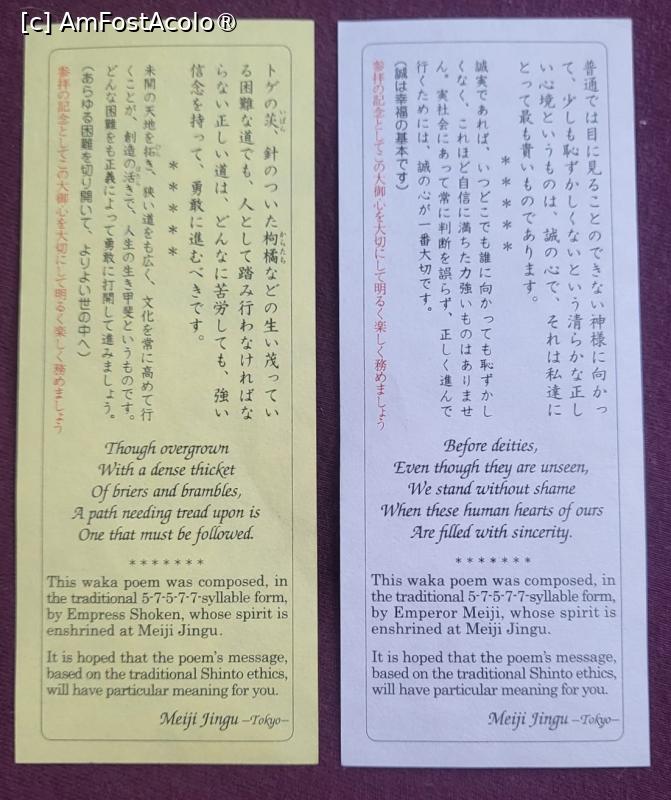 [c] AmFostAcolo®
トゲの茨、針のついた枸橘などの生い茂ってい
いばら
からたち
る困難な道でも、人として踏み行わなければな
らない正しい道は、どんなに苦労しても、強い
信念を持って、勇敢に進むべきです。
****
未開の天地を拓き、狭い道をも広く、文化を常に高めて行
くことが、創造の活きで、人生の生き甲斐というものです。
どんな困難をも正義によって勇敢に打開して進みましょう。
(あらゆる困難を切り開いて、よりよい世の中へ)
参拝の記念としてこの大御心を大切にして明るく楽しく務めましょう
Though overgrown
With a dense thicket
Of briers and brambles,
A path needing tread upon is
One that must be followed.
*******
This waka poem was composed, in
the traditional 5-7-5-7-7-syllable form,
by Empress Shoken, whose spirit is
enshrined at Meiji Jingu.
It is hoped that the poem's message,
based on the traditional Shinto ethics,
will have particular meaning for you.
Meiji Jingu –Tokyo–
普通では目に見ることのできない神様に向かっ
て、少しも恥ずかしくないという清らかな正し
い心境というものは、誠の心で、それは私達に
とって最も貴いものであります。
****
誠実であれば、いつどこでも誰に向かっても恥ずかし
くなく、これほど自信に満ちた力強いものはありませ
ん。実社会にあって常に判断を誤らず、正しく進んで
行くためには、誠の心が一番大切です。
(誠は幸福の基本です)
参拝の記念としてこの大御心を大切にして明るく楽しく務めましょう
Before deities,
Even though they are unseen,
We stand without shame
When these human hearts of ours
Are filled with sincerity.
*******
This waka poem was composed, in
the traditional 5-7-5-7-7-syllable form,
by Emperor Meiji, whose spirit is
enshrined at Meiji Jingu.
It is hoped that the poem's message,
based on the traditional Shinto ethics,
will have particular meaning for you.
Meiji Jingu –Tokyo–